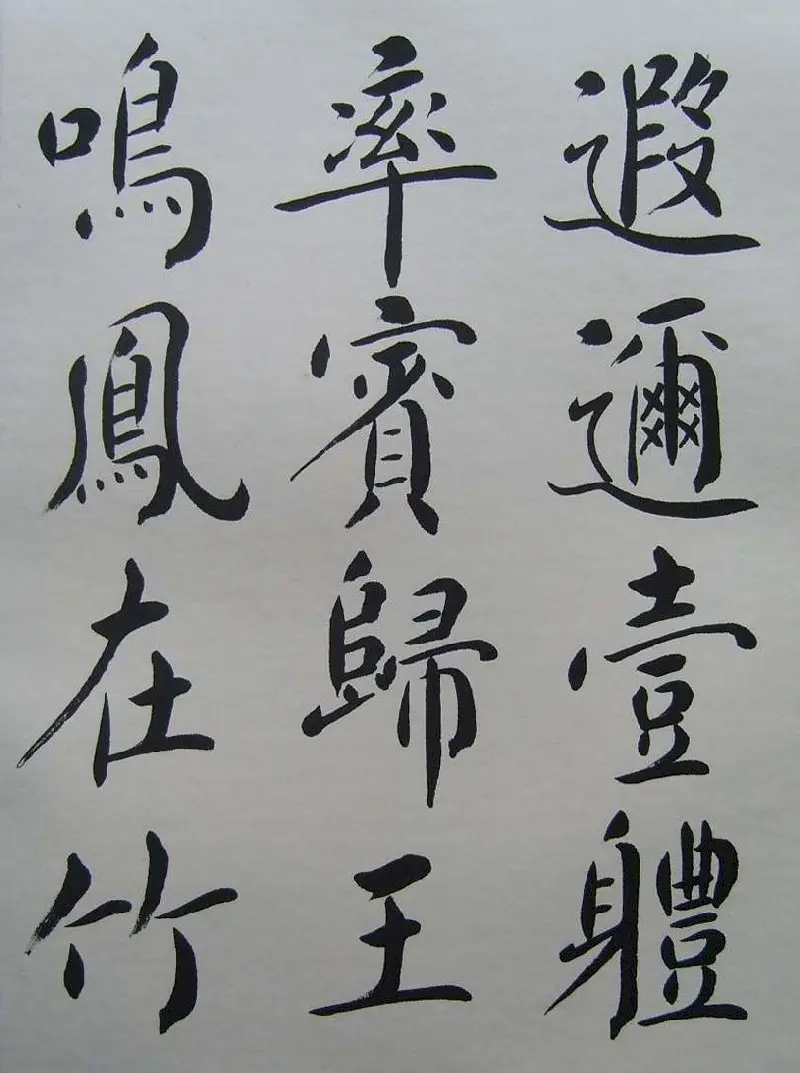 遐邇壹軆
率賓歸王
鳴鳳在竹